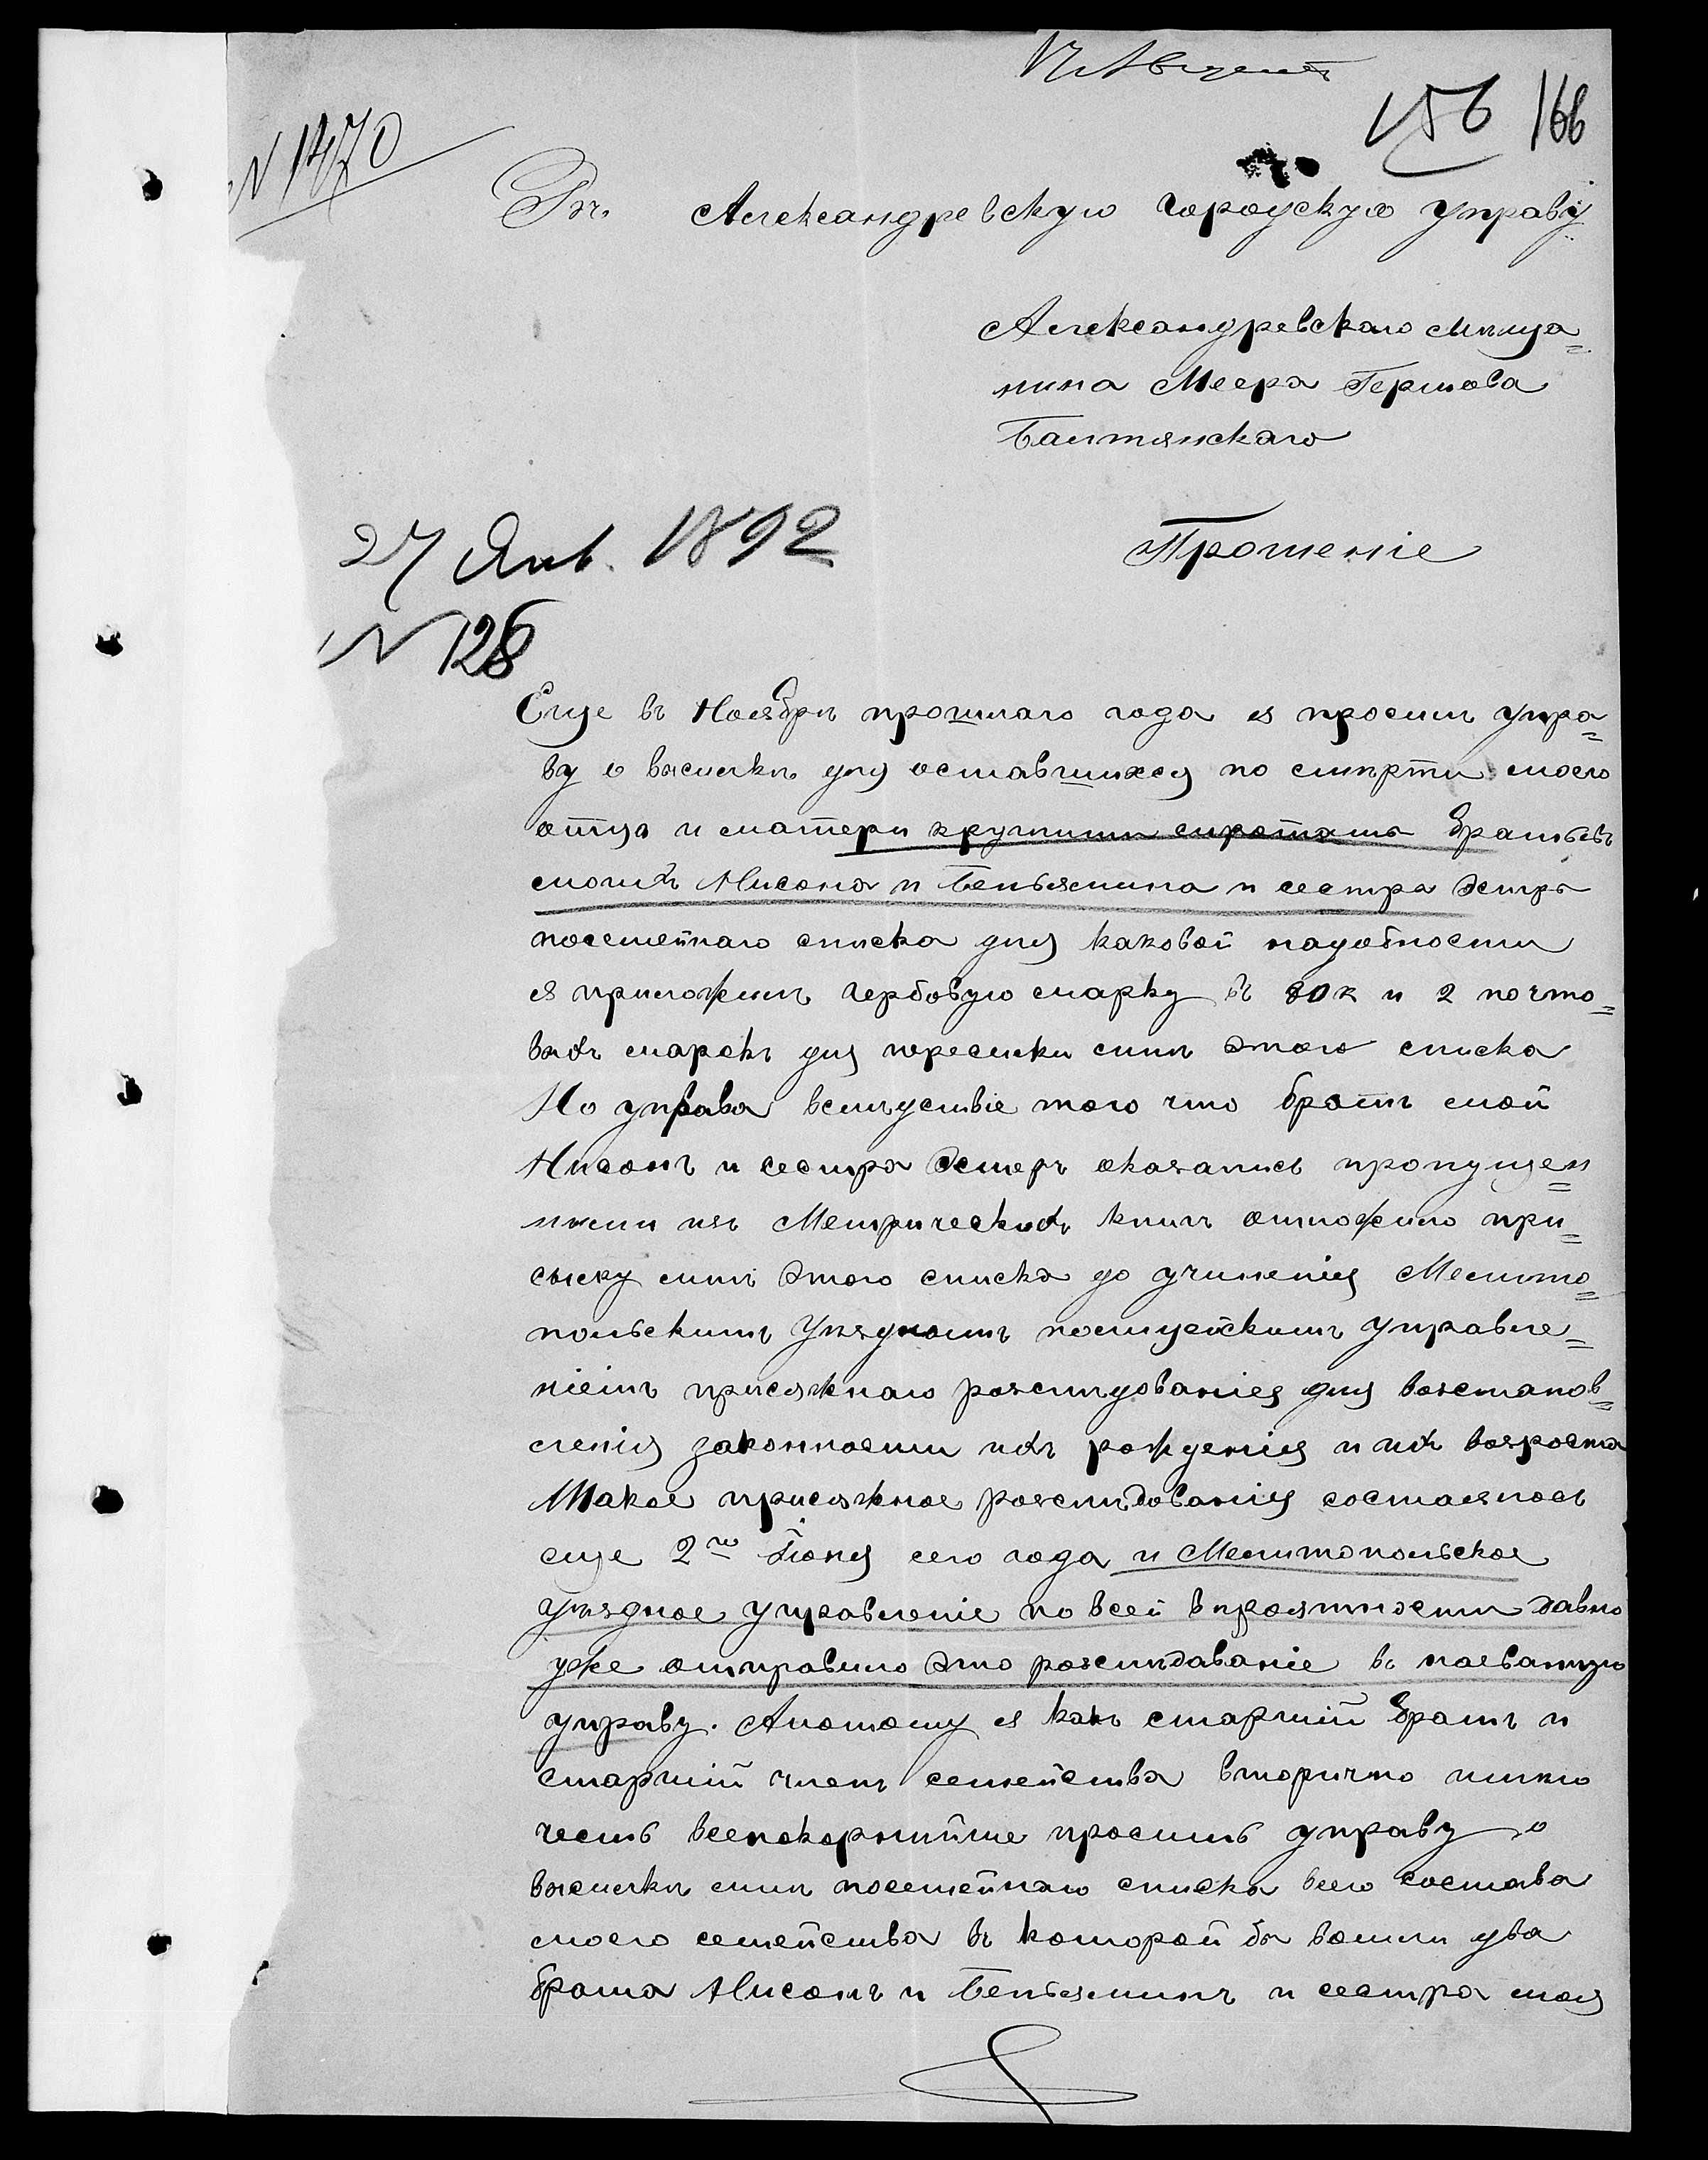 12 Августа
156 166
N 1470
Въ Александревскую Городскую Управу
Александревскаго мѣща=
нина Меера Гершова
Балтянскаго
27 Янв. 1892
Прошеніе
N 128
Еще въ Ноябрѣ прошлаго года я просилъ упра=
ву о высылкѣ для оставшихся по смѣрти моего
отца и матери круглими сиротамъ братьевъ
моихъ Нисона и Беньямина и сестра Эстръ
посемейнаго списка для каковой надобности
я приложилъ гербовую марку въ 80 к и 2 почто=
выхъ марокъ для пересылки мнѣ этого списка
Но управа вслѣдствіе того что братъ мой
Нисонъ и сестра Эстеръ оказались пропущен=
ными изъ Метрическихъ книгъ отложило при=
сылку мнѣ этого списка до учиненія Мелито=
польскимъ Уѣзднымъ полицейскимъ управле=
ніемъ присяжнаго розслѣдованія для возстанов=
ленія законности ихъ рожденія и ихъ возроста
Такое присяжное розслѣдованія состаялось
еще 2го Іюня сего года и Мелитопольское
уѣздное управленіе по всей вѣроятности давно
уже отправило это розслѣдаваніе въ названую
управу. Апотому я какъ старшій братъ и
старшій членъ семейства вторично имѣю
честь всепокорнѣйше просить управу о
высылкѣ мнѣ посемейнаго списка всего состава
моего семейства въ которой бы вошли два
брата Нисонъ и Беньяминъ и сестра моя